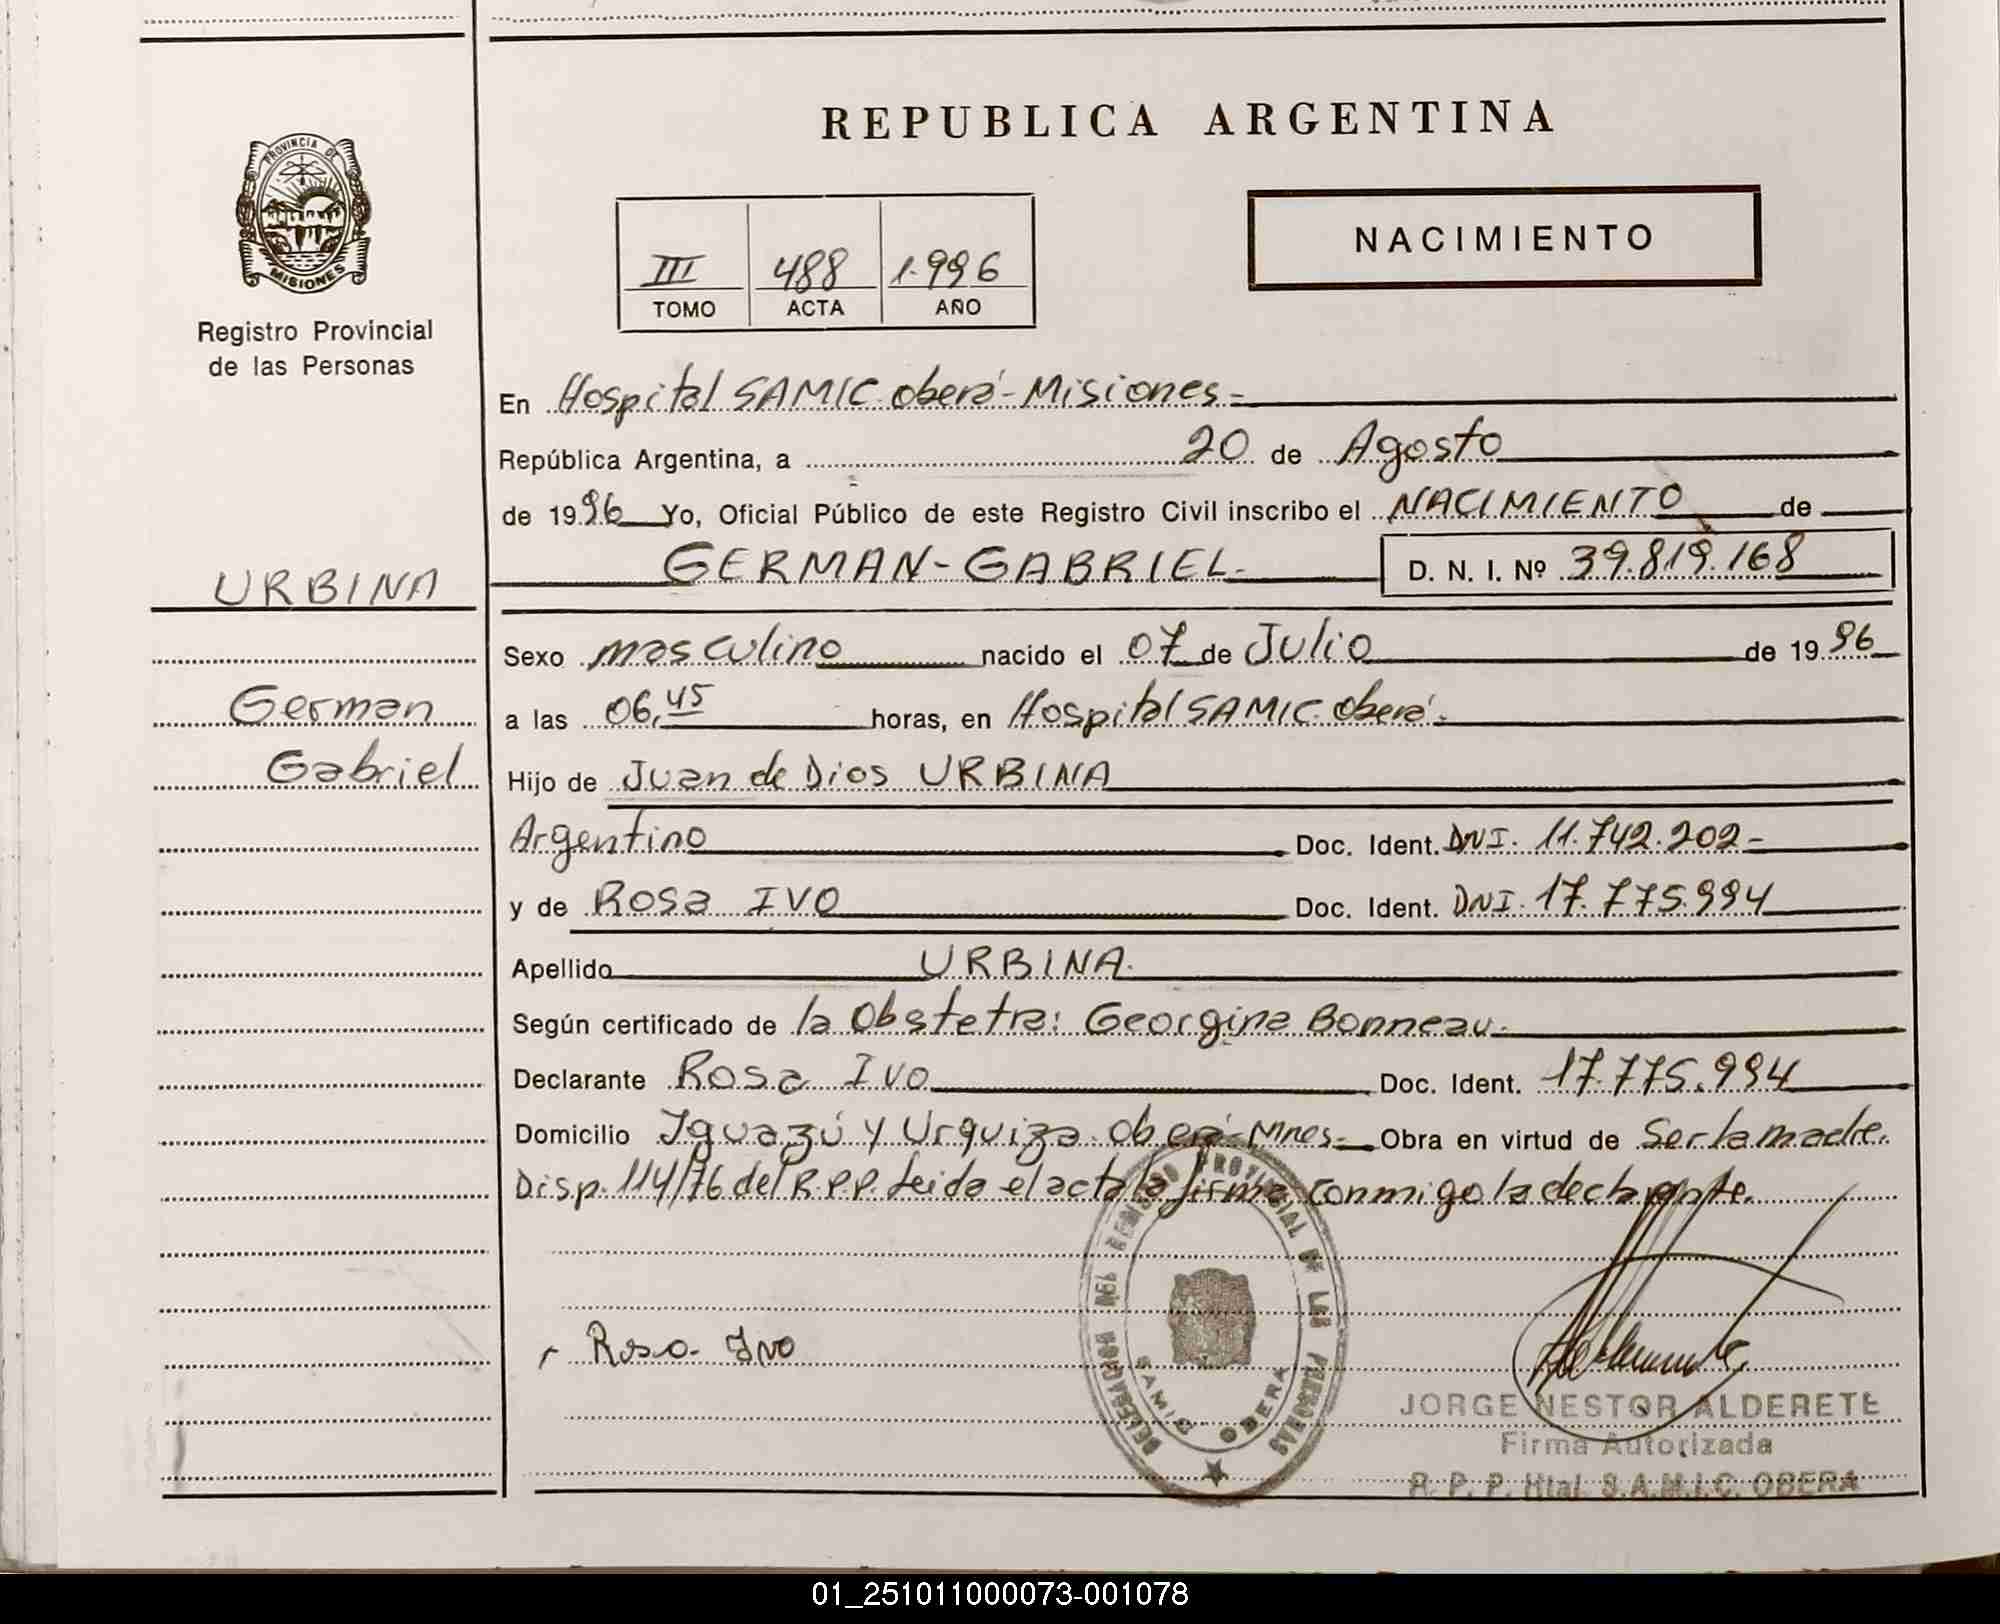 REPUBLICA ARGENTINA
PROVINCIA DE
MISIONES
Registro Provincial
de las Personas
NACIMIENTO
III 488 1.996
TOMO ACTA AÑO
En Hospital SAMIC Oberá-Misiones=
República Argentina, a 20 de Agosto
de 1996 Yo, Oficial Público de este Registro Civil inscribo el NACIMIENTO de
GERMAN-GABRIEL- D. N. I. Nº 39.819.168
URBINA
German
Gabriel
Sexo masculino nacido el 07 de Julio de 1996
a las 06,45 horas, en Hospital SAMIC Oberá-
Hijo de Juan de Dios URBINA
Argentino Doc. Ident. DNI. 11.742.202-
y de Rosa IVO Doc. Ident. DNI. 17.775.994
Apellido URBINA-
Según certificado de la Obstetra: Georgina Bonneau-
Declarante Rosa IVO Doc. Ident. 17.775.994
Domicilio Iguazú y Urquiza-Oberá-Mnes- Obra en virtud de Ser la madre.
Disp. 114/76 del R.P.P. Leida el acta la firma conmigo la declarante.
DELEGACION DEL REGISTRO PROVINCIAL DE LAS PERSONAS
SAMIC OBERA
Rosa Ivo
JORGE NESTOR ALDERETE
Firma Autorizada
R. P. P. Htal. S.A.M.I.C. OBERA
01_251011000073-001078